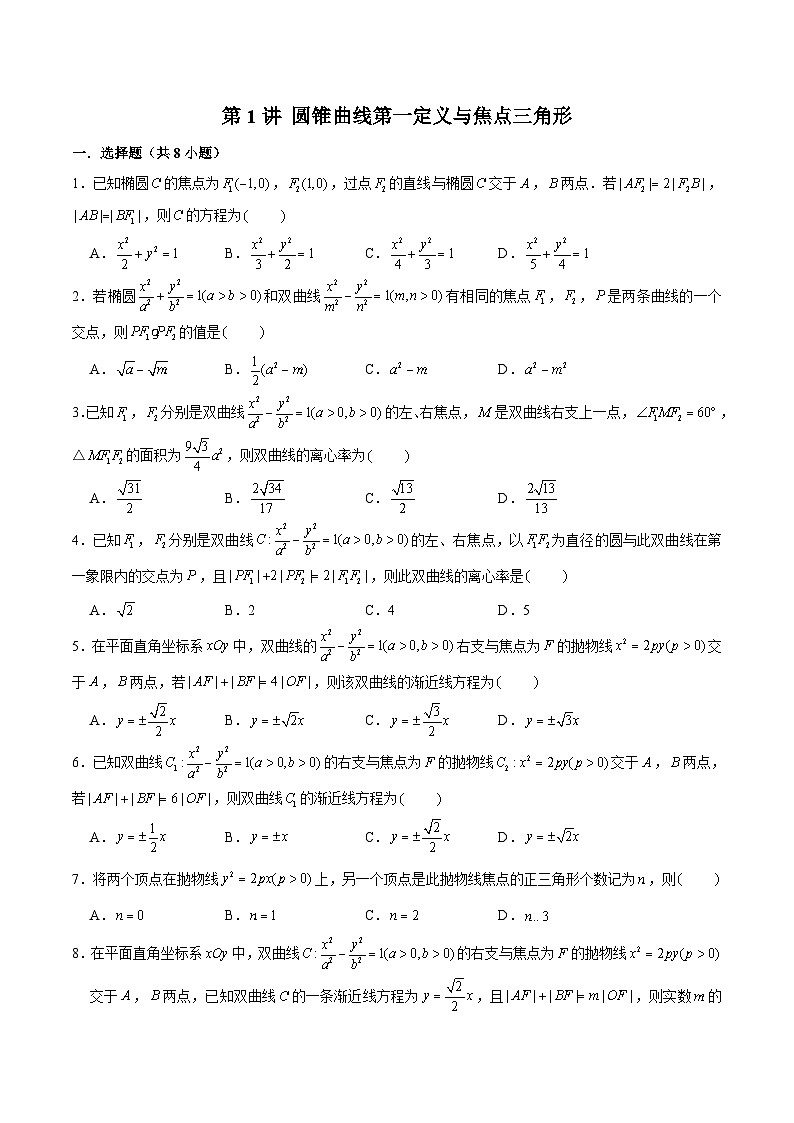 第 1 讲 圆锥曲线第一定义与焦点三角形
一．选择题（共 8 小题）
1．已知椭圆 C 的焦点为 F₁(−1,0)，F₂(1,0)，过点 F₂ 的直线与椭圆 C 交于 A，B 两点．若 | AF₂ |= 2 | F₂B |，
| AB |=| BF₁ |，则 C 的方程为(　　)
A．x²/2 + y² = 1　B．x²/3 + y²/2 = 1　C．x²/4 + y²/3 = 1　D．x²/5 + y²/4 = 1
2．若椭圆 x²/a² + y²/b² = 1(a > b > 0) 和双曲线 x²/m² − y²/n² = 1(m,n > 0) 有相同的焦点 F₁，F₂，P 是两条曲线的一个
交点，则 PF₁gPF₂ 的值是(　　)
A．√a − √m　B．1/2(a² − m)　C．a² − m　D．a² − m²
3．已知 F₁，F₂ 分别是双曲线 x²/a² − y²/b² = 1(a > 0,b > 0) 的左、右焦点，M 是双曲线右支上一点，∠F₁MF₂ = 60°，
△MF₁F₂ 的面积为 9√3/4 a²，则双曲线的离心率为(　　)
A．√31/2　B．2√34/17　C．√13/2　D．2√13/13
4．已知 F₁，F₂ 分别是双曲线 C : x²/a² − y²/b² = 1(a > 0,b > 0) 的左、右焦点，以 F₁F₂ 为直径的圆与此双曲线在第
一象限内的交点为 P，且 | PF₁ | +2 | PF₂ |= 2 | F₁F₂ |，则此双曲线的离心率是(　　)
A．√2　B．2　C．4　D．5
5．在平面直角坐标系 xOy 中，双曲线的 x²/a² − y²/b² = 1(a > 0,b > 0) 右支与焦点为 F 的抛物线 x² = 2py(p > 0) 交
于 A，B 两点，若 | AF | + | BF |= 4 | OF |，则该双曲线的渐近线方程为(　　)
A．y = ±√2/2 x　B．y = ±√2x　C．y = ±√3/2 x　D．y = ±√3x
6．已知双曲线 C₁ : x²/a² − y²/b² = 1(a > 0,b > 0) 的右支与焦点为 F 的抛物线 C₂ : x² = 2py(p > 0) 交于 A，B 两点，
若 | AF | + | BF |= 6 | OF |，则双曲线 C₁ 的渐近线方程为(　　)
A．y = ±1/2 x　B．y = ±x　C．y = ±√2/2 x　D．y = ±√2x
7．将两个顶点在抛物线 y² = 2px(p > 0) 上，另一个顶点是此抛物线焦点的正三角形个数记为 n，则(　　)
A．n = 0　B．n = 1　C．n = 2　D．n‥3
8．在平面直角坐标系 xOy 中，双曲线 C : x²/a² − y²/b² = 1(a > 0,b > 0) 的右支与焦点为 F 的抛物线 x² = 2py(p > 0)
交于 A，B 两点，已知双曲线 C 的一条渐近线方程为 y = √2/2 x，且 | AF | + | BF |= m | OF |，则实数 m 的